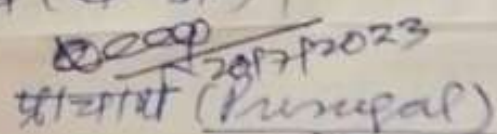 20/7/2023
प्राचार्य (Principal)